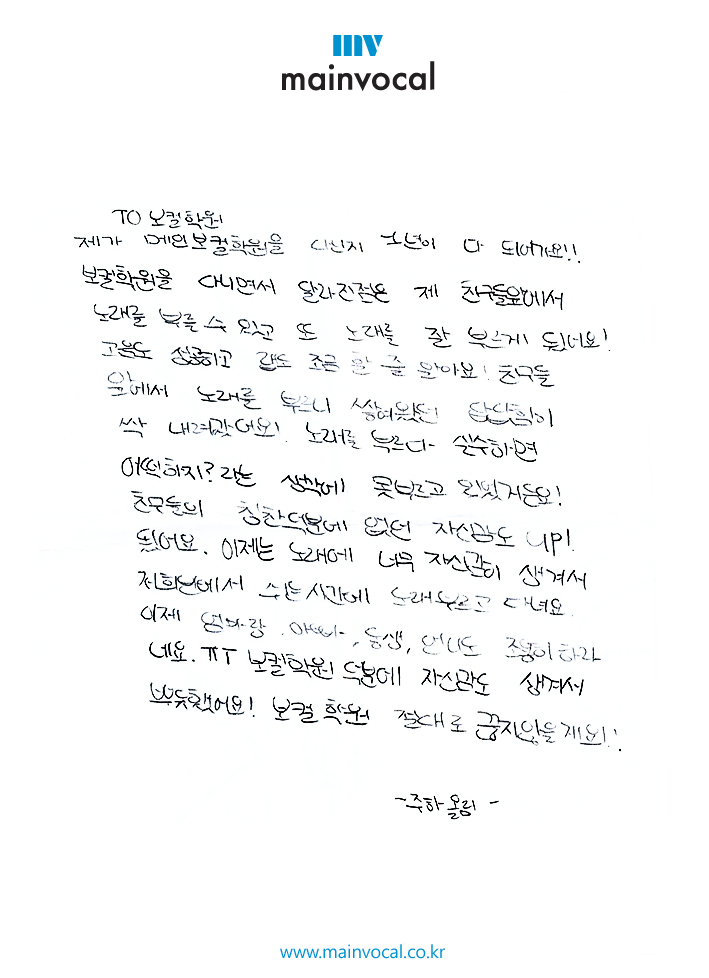 mv
mainvocal
TO 보컬학원
제가 메인보컬학원을 다닌지 1년이 다 되어가요!!
보컬학원을 다니면서 달라진점은 제 친구들앞에서
노래를 부를 수 있고 또 노래를 잘 부르게 됬어요!
고음도 성공하고 랩도 조금 할 줄 알아요! 친구들
앞에서 노래를 부르니 쌓여왔던 답답함이
싹 내려갔어요! 노래를 부르다 실수하면
어떡하지? 라는 생각에 못부르고 있었거든요!
친구들의 칭찬덕분에 없던 자신감도 UP!
됬어요. 이제는 노래에 너무 자신감이 생겨서
저희반에서 쉬는시간에 노래부르고 다녀요.
이제 엄마랑 아빠, 동생, 언니도 조용히하라
네요. ㅠㅠ 보컬학원 덕분에 자신감도 생겨서
뿌듯했어요! 보컬 학원 절대로 끊지않을게요!!
- 주하 올림 -
www.mainvocal.co.kr